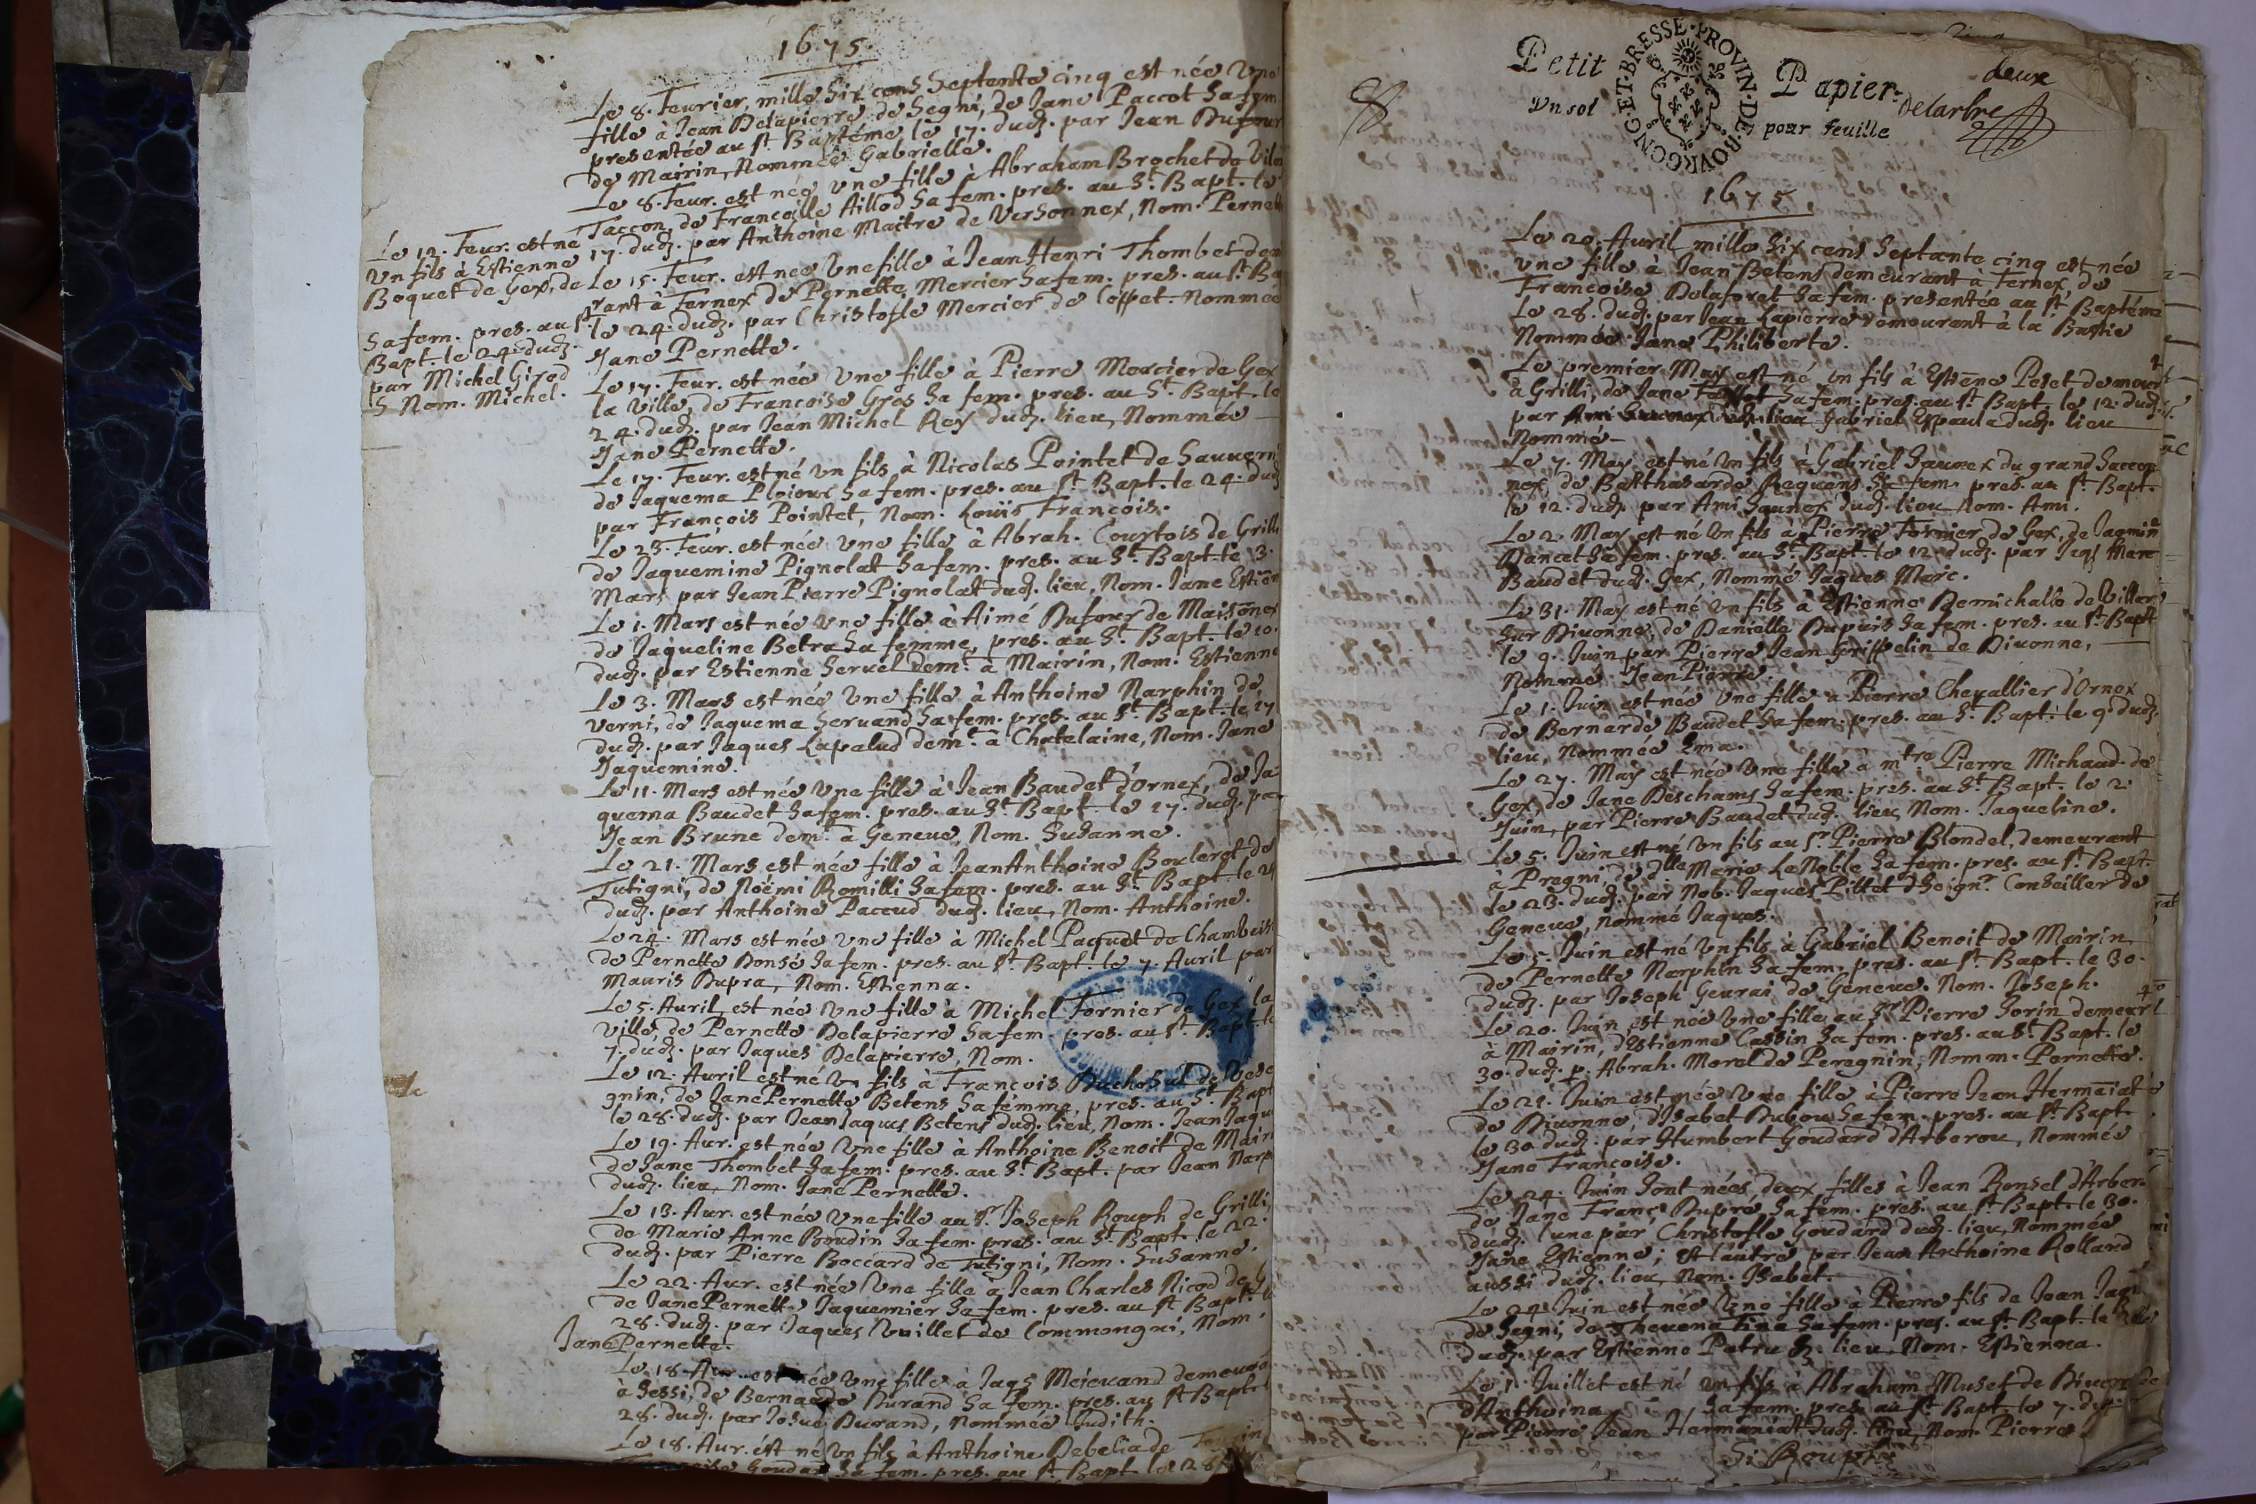 1675.
Le 8. Feurier, mille six cens septante cinq est née Vne
fille à Jean Delapierre de Segni, de Jane Paccot Sa fem
presentée au St Baptéme le 17. dudz. par Jean Dufour
de Mairin, Nommée Gabrielle.
Le 8. Feur. est née Vne fille à Abraham Brochet do
Taccon, de Françoise Aillod Sa fem. pres. au St. Bapt. le
17. dudz. par Anthoine Maitre de Versonnex, Nom. Pernett
Le 12. Feur. est né
Vn fils à Estienne
Boquet de Gex, de
Sa fem. pres. au St
Bapt. le 24. dudz.
par Michel Girod
Nom. Michel.
Le 15. Feur. est née Vne fille à Jean Henri Thombet dem
rant à Fernex de Pernette Mercier Sa fem. pres. au St Ba
le 24. dudz. par Christofle Mercier de Coppet. Nommée
Jane Pernette.
Le 17. Feur. est née Vne fille à Pierre Mercier de Gex
la Ville, de Francoise Gros Sa fem. pres. au St. Bapt. le
24. dudz. par Jean Michel Rey dudz. lieu, Nommée
Jane Pernette.
Le 17. Feur. est né Vn fils à Nicolas Pointet de Sauuerni
de Jaquema Sa fem. pres. au St Bapt. le 24. dudz
par François Pointet, Nom. Louïs François.
Le 23. Feur. est née Vne fille à Abrah. Courtois de Grilli
de Jaquemine Pignolat Sa fem. pres. au St Bapt. le 3.
Mars par Jean Pierre Pignolat dudz. lieu, Nom. Jane Estien
Le 1. Mars est née Vne fille à Aimé Dufour de Maisonex
de Jaqueline Betra Sa femme, pres. au St. Bapt. le 10.
dudz. par Estienne Seruel demt. à Mairin, Nom. Estienne
Le 3. Mars est née Vne fille à Anthoine Narphin de
verni, de Jaquema Seruand Sa fem. pres. au St. Bapt. le 17
dudz. par Jaques Lapalud demt. à Chatelaine, Nom. Jane
Jaquemine.
Le 11. Mars est née Vne fille à Jean Baudet d'Ornex, de Ja-
quema Baudet Sa fem. pres. au St Bapt. le 17. dudz. par
Jean Brune demt. à Geneue, Nom. Susanne.
Le 21. Mars est née fille à Jean Anthoine Boulerot de
Tutigni, de Noëmi Romilli Sa fem. pres. au St Bapt. le 2
dudz. par Anthoine Paccud dudz. lieu, Nom. Anthoine.
Le 24. Mars est née Vne fille à Michel Paquet de Chambeisi
de Pernette Donsé Sa fem. pres. au St. Bapt. le 7. Auril par
Mauris Dupra, Nom. Estienna.
Le 5. Auril est née Vne fille à Michel Fornier de Gex la
Ville, de Pernette Delapierre Sa fem. pres. au St. Bapt. le
7. dudz. par Jaques Delapierre, Nom.
Le 12. Auril est né Vn fils à François Duchosal de Vese
gnin, de Jane Pernette Betens Sa femme, pres. au St. Bapt
le 28. dudz. par Jean Jaques Betens dudz. lieu, Nom. Jean Jaque
Le 19. Aur. est née Vne fille à Anthoine Benoit de Mairi
de Jane Thombet Sa fem. pres. au St. Bapt. par Jean Narp
dudz. lieu, Nom. Jane Pernette.
Le 13. Aur. est née Vne fille au Sr. Joseph Rouph de Grilli,
de Marie Anne Boudin Sa fem. pres. au St. Bapt. le 22.
dudz. par Pierre Boccard de Tutigni, Nom. Susanne.
Le 22. Aur. est née Vne fille à Jean Charles Nicod de G
de Jane Pernette Jaquemier Sa fem. pres. au St Bapt. le
28. dudz. par Jaques Vuillet de Commongni, Nom.
Jane Pernette.
Le 18. Aur. est née Vne fille à Jaqs Mejeuand demeura
à Sessi, de Bernarde Durand Sa fem. pres. au St Bapt.
28. dudz. par Josué Durand, Nommée Judith.
Le 18. Aur. est né Vn fils à Anthoine Debelia de
Goudar Sa fem. pres. au St. Bapt. le 28
Petit Papier.
Vn sol pour feuille
BOVRGONG. ET. BRESSE. PROVIN. DE
deux
Delarbre
1675.
Le 20. Auril mille six cens septante cinq est née
vne fille à Jean Betens demeurant à Fernex, de
Francoise Delaforet Sa fem. presentée au St Baptéme
Le 28. dudz. par Jean Lapierre demourant à la Bastie
Nommée Jane Philiberte.
Le premier May est né Vn fils à Estiene Peset demour
à Grilli, de Jane Sa fem. pres. au St Bapt. le 12. dudz.
par Gabriel Espaula dudz. lieu
Nommé
Le 7. May est né Vn fils à Gabriel Saunex du grand Saccon
nex, de Balthasarde Requens Sa fem. pres. au St. Bapt.
le 12. dudz. par Ami Saunex dudz. lieu Nom. Ami.
Le 2. May est né Vn fils à Pierre Fornier de Gex, de Jaqmine
Dancet Sa fem. pres. au St. Bapt. le 12. dudz. par Jaqs Marc
Baudet dudz. Gex, Nommé Jaques Marc.
Le 31. May est né Vn fils à Estienne Demichalis de Villar
sur Diuonne, de Danielle Dupuis Sa fem. pres. au St Bapt
le 9. Juin par Pierre Jean Griffelin de Diuonne,
Nommé Jean Pierre.
Le 1. Juin est née Vne fille à Pierre Cheuallier d'Ornex
de Bernarde Baudet Sa fem. pres. au St. Bapt. le 9. dudz.
lieu, Nommée Ema.
Le 27. May est née Vne fille à mtre Pierre Michaud de
Gex, de Jane Deschams Sa fem. pres. au St. Bapt. le 2.
Juin, par Pierre Baudet dudz. lieu, Nom. Jaqueline.
Le 5. Juin est né Vn fils au Sr. Pierre Blondel, demeurant
à Pregni, de dlle Marie LeNoble Sa fem. pres. au St. Bapt.
le 23. dudz. par Nob. Jaques Pittet dseignr. Conseiller de
Geneue, nommé Jaques.
Le 5. Juin est né Vn fils à Gabriel Benoit de Mairin
de Pernette Narphin Sa fem. pres. au St. Bapt. le 30.
dudz. par Joseph Geurai de Geneue. Nom. Joseph.
Le 20. Juin est née Vne fille au Sr Pierre Sorin demeurt
à Mairin, d'Estienne Cassin Sa fem. pres. au St. Bapt. le
30. dudz. p. Abrah. Morel de Peregnin, Nomm. Pernette.
Le 21. Juin est née Vne fille à Pierre Jean Hermaiat
de Diuonne, d'Isabet Dubou Sa fem. pres. au St Bapt.
le 30. dudz. par Humbert Goudard d'Arberou, Nommée
Jane Francoise.
Le 24. Juin sont nées deux filles à Jean Ronset d'Arber.
de Jane Franc. Dupré Sa fem. pres. au St Bapt. le 30.
dudz. l'une par Christofle Goudard dudz. lieu, Nommée
Jane Estienne; et l'autre par Jean Anthoine Rolland
aussi dudz. lieu, Nom. Isabet.
Le 24. Juin est née Vne fille à Pierre fils de Jean Jaqu
de Segni, de Theuena Tina Sa fem. pres. au St. Bapt. le
dudz. par Estienne Patru dz. lieu. Nom. Estienna.
Le 1. Juillet est né Vn fils à Abraham Muset de Diuonne
d'Anthoina Sa fem. pres. au St. Bapt. le 7. dud.
par Pierre Jean Hermaniat dudz. lieu, Nom. Pierre